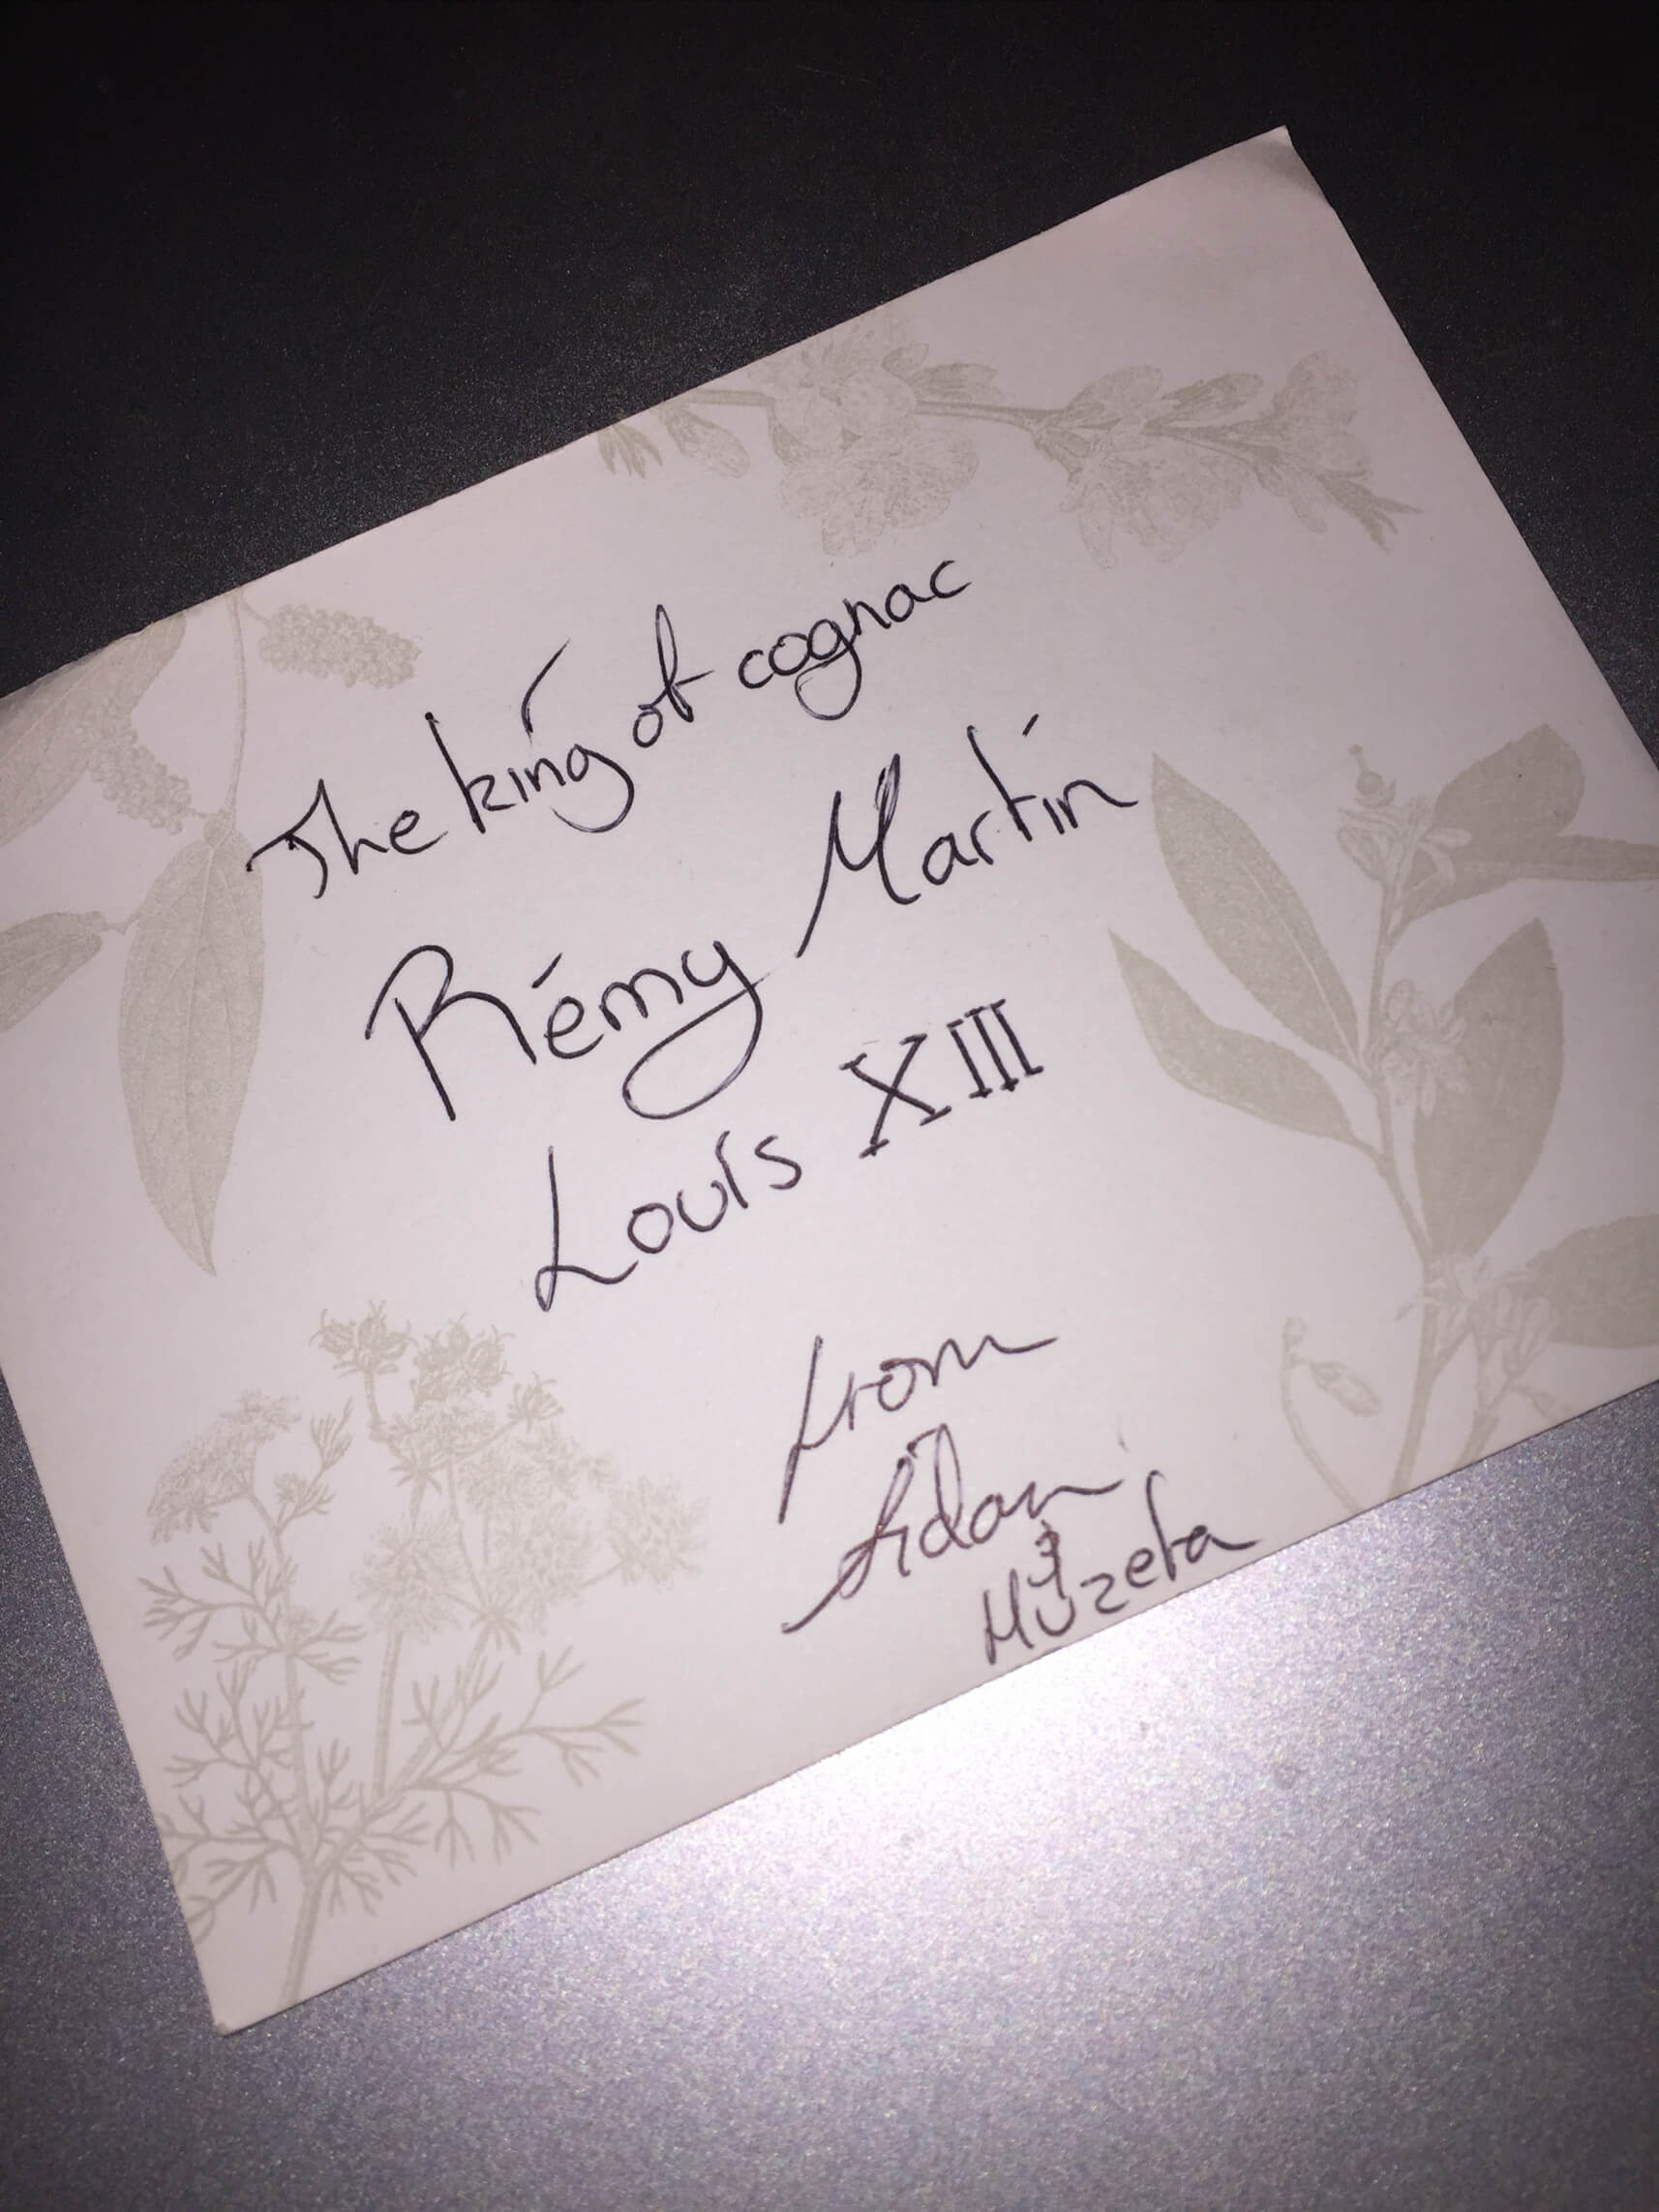 The king of cognac
Rémy Martin
Louis XIII
from
Aidan
&
Muzeta